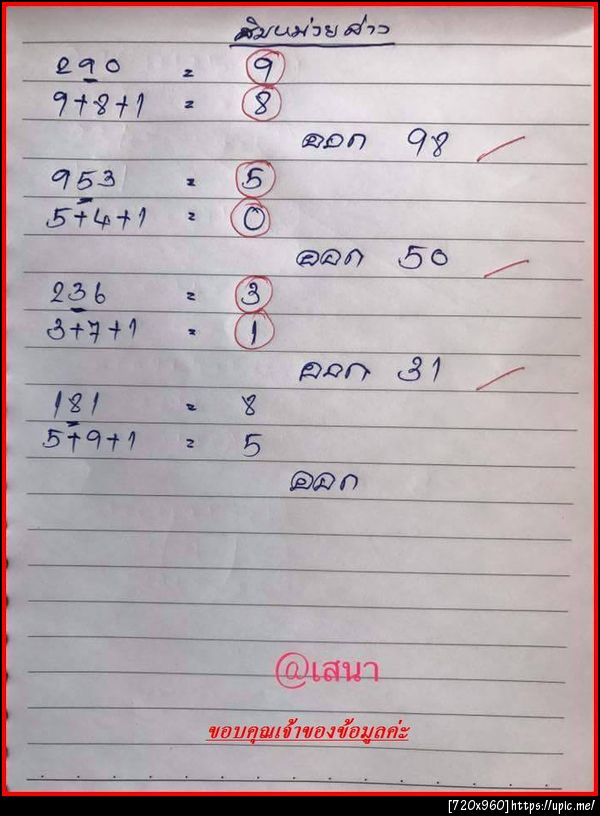 290 = 9
9+8+1 = 8
ออก 98
953 = 5
5+4+1 = 0
ออก 50
236 = 3
3+7+1 = 1
ออก 31
181 = 8
5+9+1 = 5
ออก
@เสนา
ขอบคุณเจ้าของข้อมูลค่ะ
[720x960]https://upic.me/